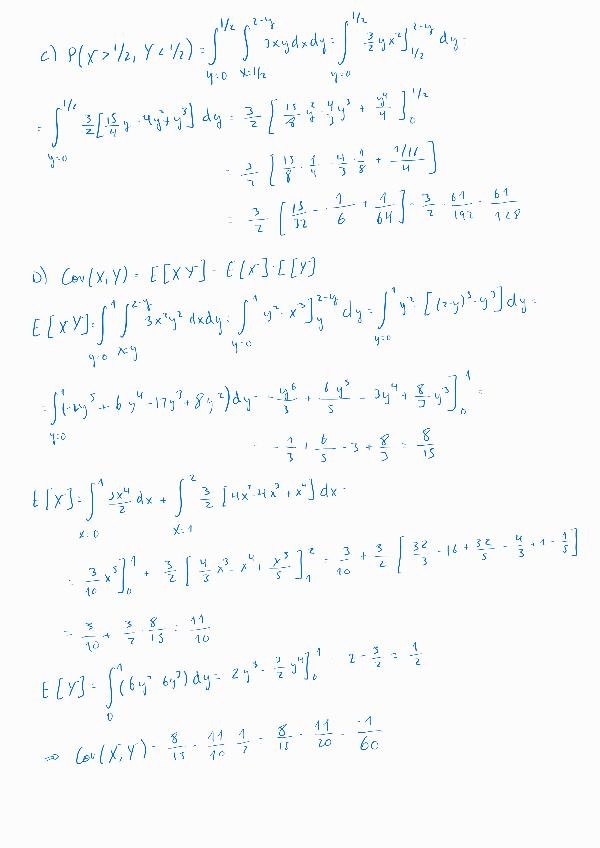 c) P(X > 1/2, Y < 1/2) = ∫_{y=0}^{1/2} ∫_{x=1/2}^{2-y} 3xy dx dy = ∫_{y=0}^{1/2} 3/2 y x² ]_{1/2}^{2-y} dy =
= ∫_{y=0}^{1/2} 3/2 [15/4 y - 4y² + y³] dy = 3/2 [15/8 y² - 4/3 y³ + y⁴/4]_0^{1/2}
= 3/2 [15/8 · 1/4 - 4/3 · 1/8 + (1/16)/4]
= 3/2 [15/32 - 1/6 + 1/64] = 3/2 · 61/192 = 61/128
D) Cov(X, Y) = E[XY] - E[X]·E[Y]
E[XY] = ∫_{y=0}^{1} ∫_{x=y}^{2-y} 3x²y² dx dy = ∫_{y=0}^{1} y² · x³ ]_y^{2-y} dy = ∫_{y=0}^{1} y² · [(2-y)³ - y³] dy =
= ∫_{y=0}^{1} (-2y⁵ + 6y⁴ - 12y³ + 8y²) dy = -y⁶/3 + 6y⁵/5 - 3y⁴ + 8/3 y³ ]_0^1 =
= -1/3 + 6/5 - 3 + 8/3 = 8/15
E[X] = ∫_{x=0}^{1} 3x⁴/2 dx + ∫_{x=1}^{2} 3/2 [4x² - 4x³ + x⁴] dx =
= 3/10 x⁵ ]_0^1 + 3/2 [4/3 x³ - x⁴ + x⁵/5]_1^2 = 3/10 + 3/2 [32/3 - 16 + 32/5 - 4/3 + 1 - 1/5]
= 3/10 + 3/2 · 8/15 = 11/10
E[Y] = ∫_0^1 (6y² - 6y³) dy = 2y³ - 3/2 y⁴ ]_0^1 = 2 - 3/2 = 1/2
⇒ Cov(X, Y) = 8/15 - 11/10 · 1/2 = 8/15 - 11/20 = -1/60